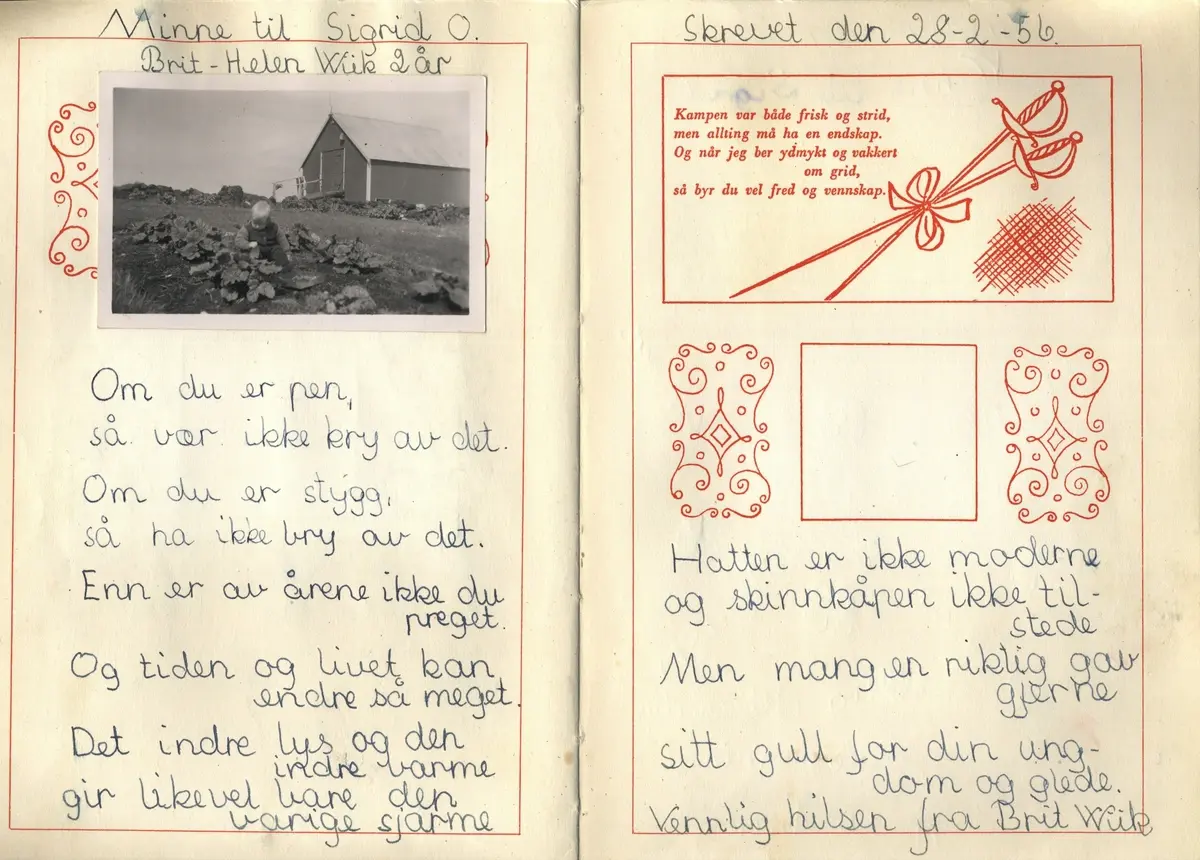 Minne til Sigrid O.
Brit-Helen Wiik 2 år
Om du er pen,
så vær ikke kry av det.
Om du er stygg,
så ha ikke bry av det.
Enn er av årene ikke du
preget.
Og tiden og livet kan
endre så meget.
Det indre lys og den
indre varme
gir likevel bare den
varige sjarme
Skrevet den 28-2-56.
Kampen var både frisk og strid,
men allting må ha en endskap.
Og når jeg ber ydmykt og vakkert
om grid,
så byr du vel fred og vennskap.
Hatten er ikke moderne
og skinnkåpen ikke til-
stede
Men mang en riktig gav
gjerne
sitt gull for din ung-
dom og glede.
Vennlig hilsen fra Brit Wiik